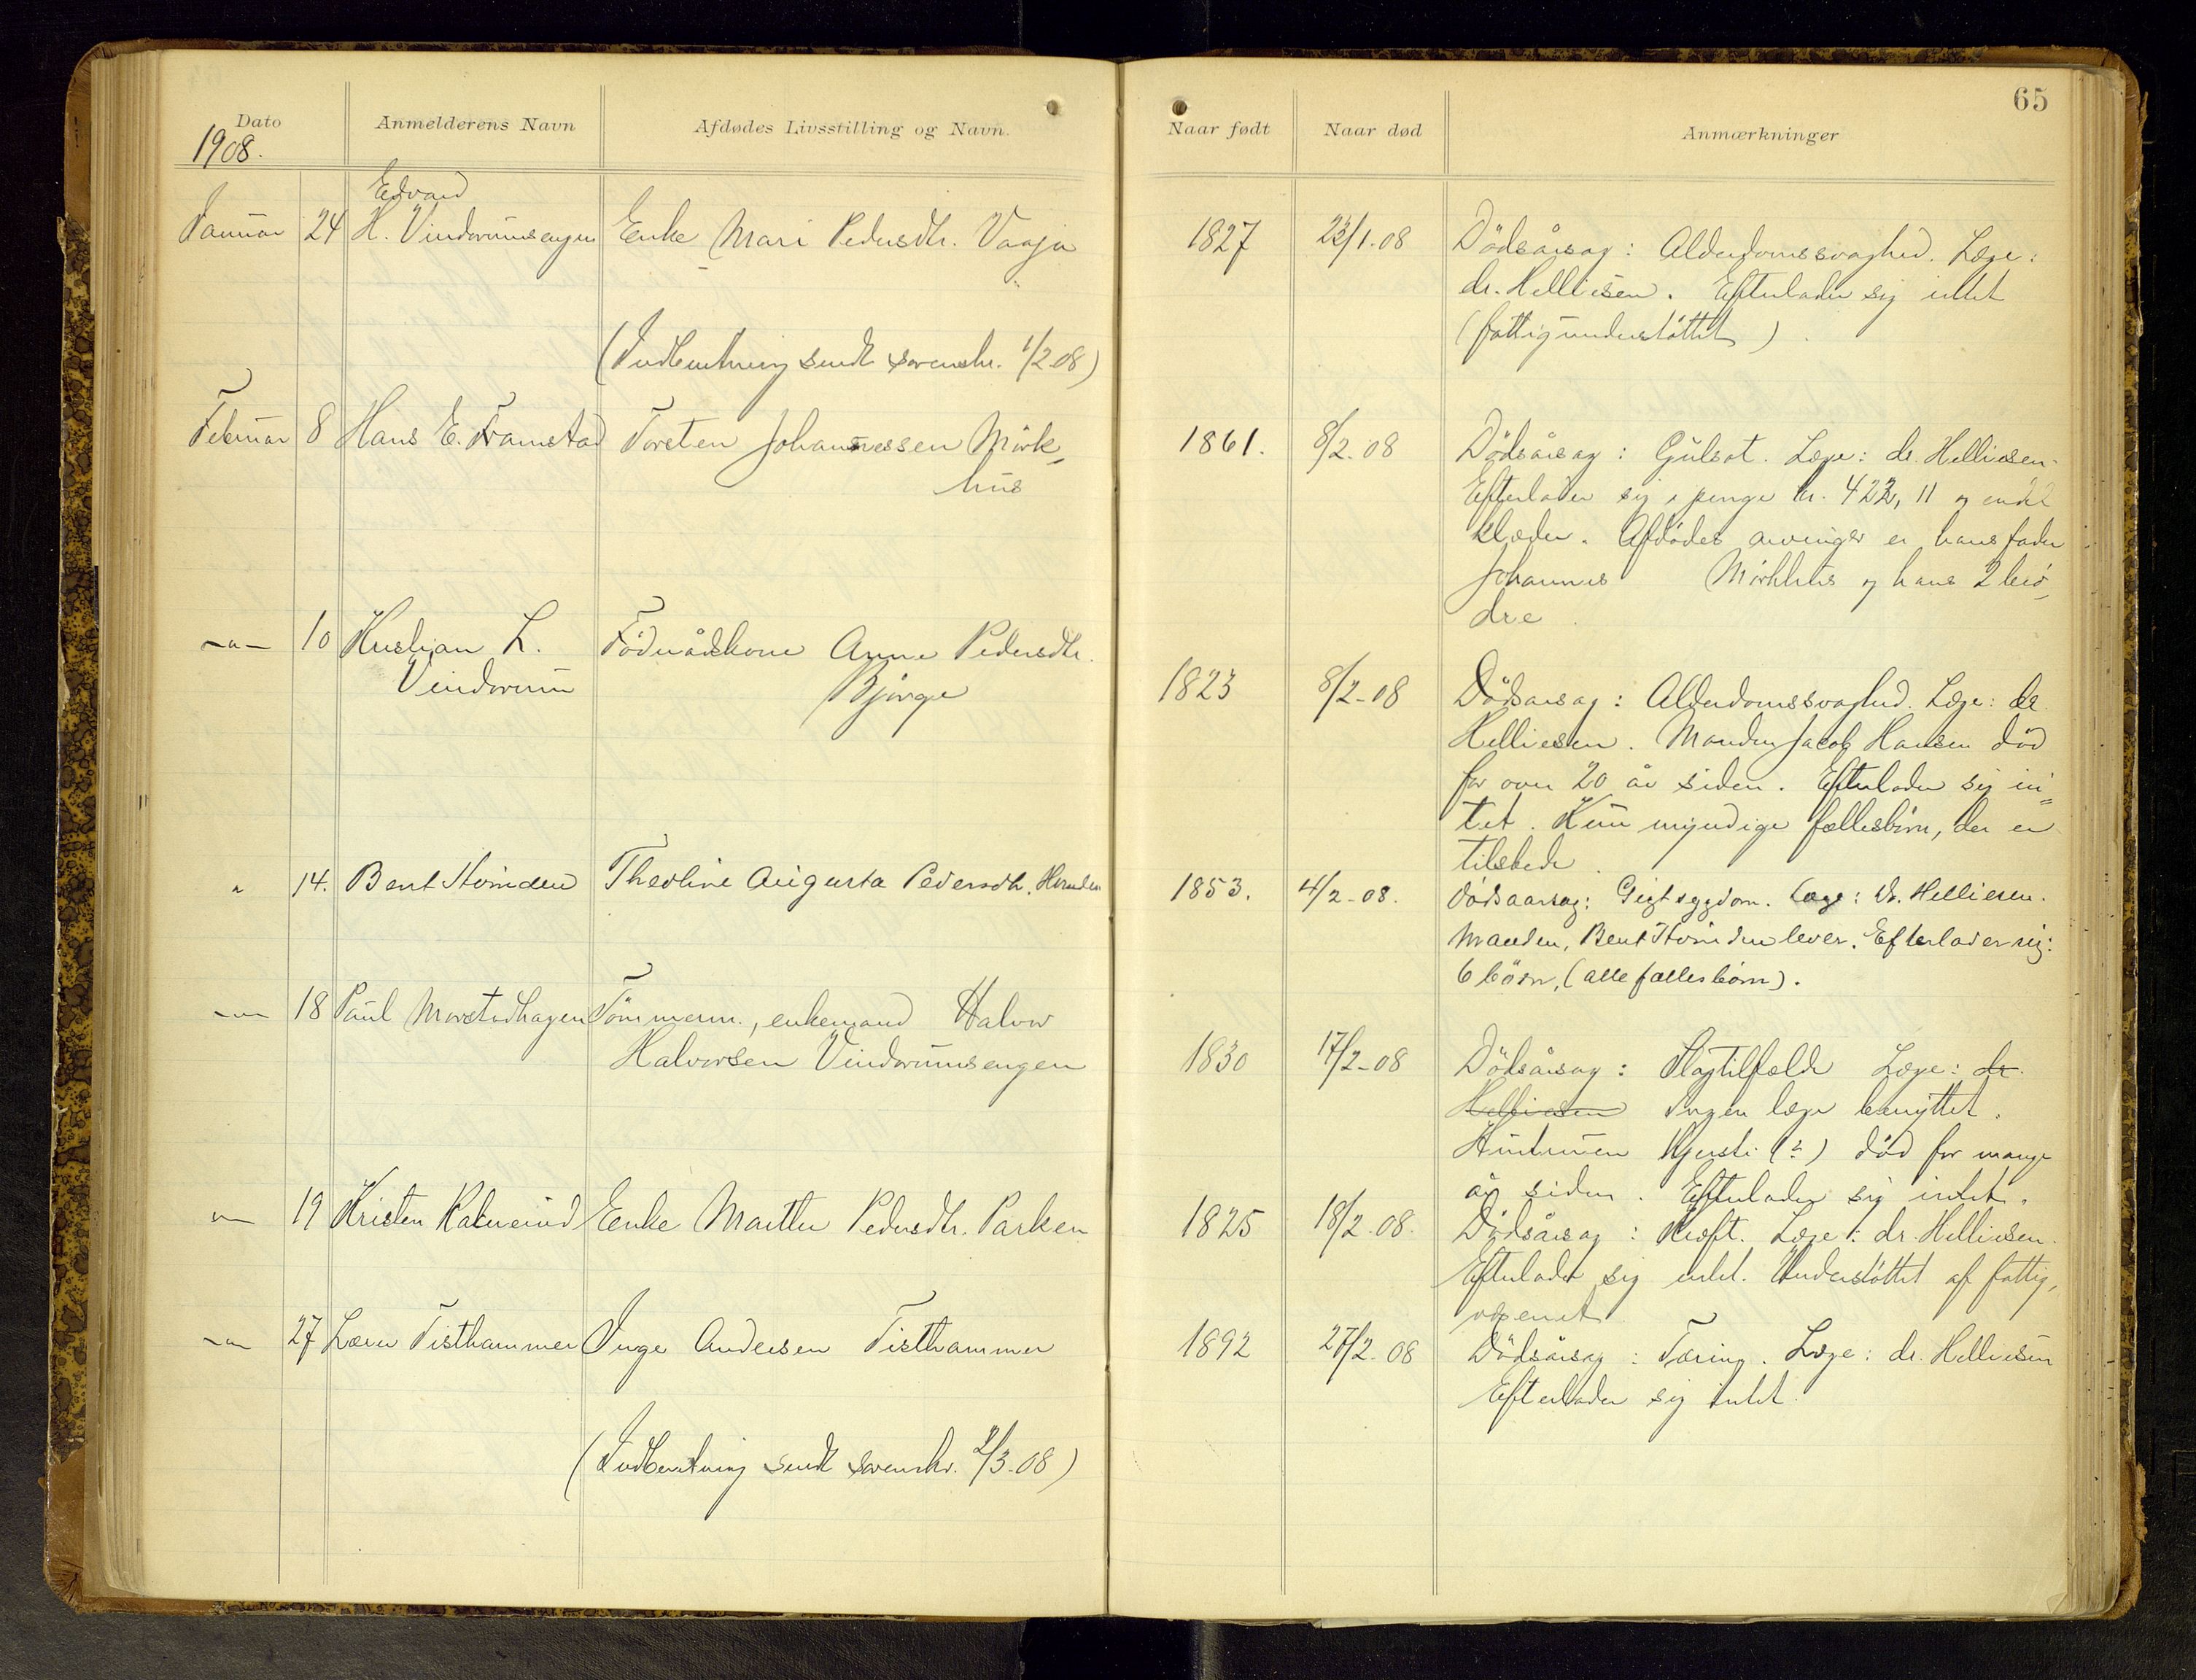 65
Dato
Anmelderens Navn
Afdødes Livsstilling og Navn.
Naar født
Naar død
Anmærkninger
1908.
Edvard
Januar 24 H. Vindorumsengen Enke Mari Pedersdtr. Vaaja 1827 23/1.08 Dödsårsag: Alderdomssvaghed. Læge:
dr. Helliesen. Efterlader sig intet
(fattigunderstöttet).
(Indberetning sendt sorenskr. 1/2 08)
Februar 8 Hans E. Framstad Torsten Johannessen Mörk- 1861. 8/2. 08 Dödsårsag: Gulsot. Læge: dr. Helliesen.
hus
Efterlader sig i penge kr. 422, 11 og endel
klæder. Afdødes arvinger er hans fader
Johannes Mörkhus og hans 2 brö-
dre.
-"- 10 Kristian L. Födrådskone Anne Pedersdtr.
Vindorum Bjørge 1823 8/2-08 Dödsarsag: Alderdomssvaghed. Læge: dr.
Helliesen. Manden Jacob Hansen död
for over 20 år siden. Efterlader sig in-
tet. Kun myndige fællesbörn, der er
tilstede.
" 14. Bent Hvinden Theoline Augusta Pedersdtr. Hvinden 1853. 4/2-08. Dödsaarsag: Gigtsygdom. Læge: Dr. Helliesen.
Manden, Bent Hvinden lever. Efterlader sig:
6 börn, (alle fællesbörn).
-"- 18 Paul Morstadhagen Tömmerm., enkemand Halvor
Halvorsen Vindorumsengen 1830 17/2-08 Dödsårsag: Slagtilfælde Læge: dr.
Helliesen Ingen læge benyttet.
Hustruen Kjersti (?) död for mange
år siden. Efterlader sig intet.
-"- 19 Kristen Enke Marthe Pedersdtr. Parken 1825 18/2-08. Dödsårsag: Kræft. Læge: dr. Helliesen.
Efterlader sig intet. Understöttet af fattig-
væsenet
-"- 27 Tisthammer Inge Andersen Tisthammer 1892 27/2-08 Dödsårsag: Tæring. Læge: dr. Helliesen
Efterlader sig intet.
(Indberetning sendt sorenskr. 2/3-08)